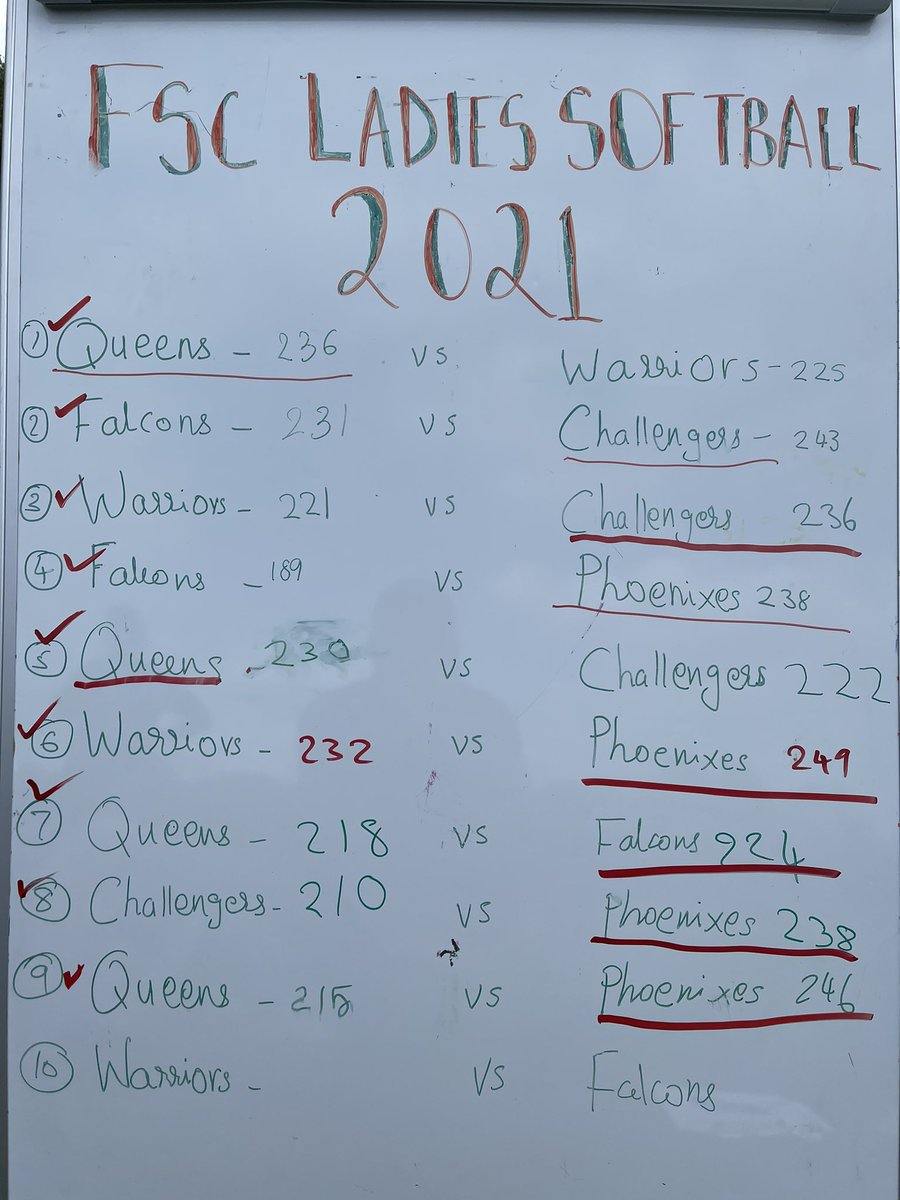 FSC LADIES SOFTBALL
2021
① Queens - 236 vs Warriors - 225
② Falcons - 231 vs Challengers - 243
③ Warriors - 221 vs Challengers 236
④ Falcons - 189 vs Phoenixes 238
⑤ Queens - 230 vs Challengers 222
⑥ Warriors - 232 vs Phoenixes 249
⑦ Queens - 218 vs Falcons 224
⑧ Challengers - 210 vs Phoenixes 238
⑨ Queens - 215 vs Phoenixes 246
⑩ Warriors - vs Falcons